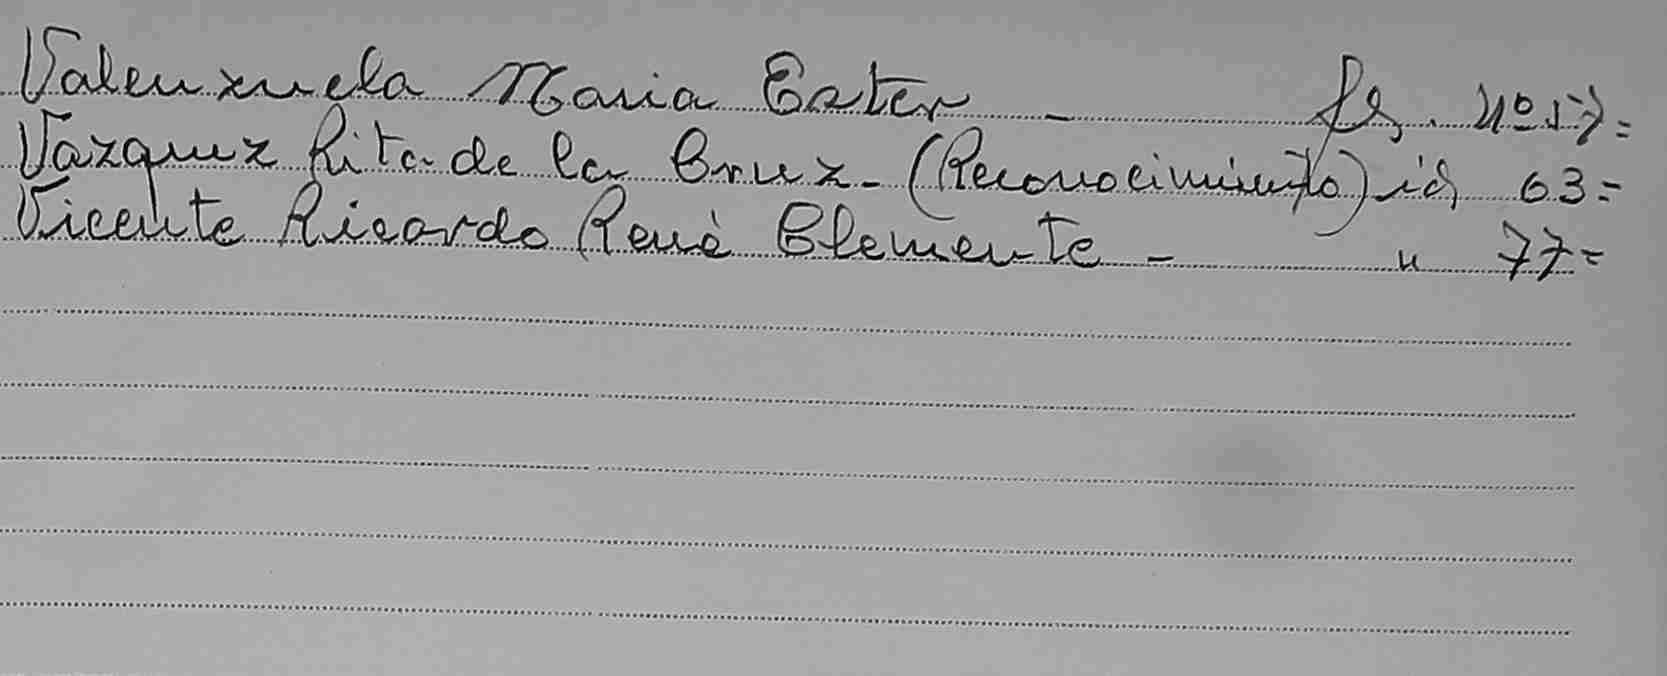 Valenzuela Maria Ester - fs. nº 57=
Vazquez Rita de la Cruz - (Reconocimiento) id, 63=
Vicente Ricardo René Clemente - " 77=